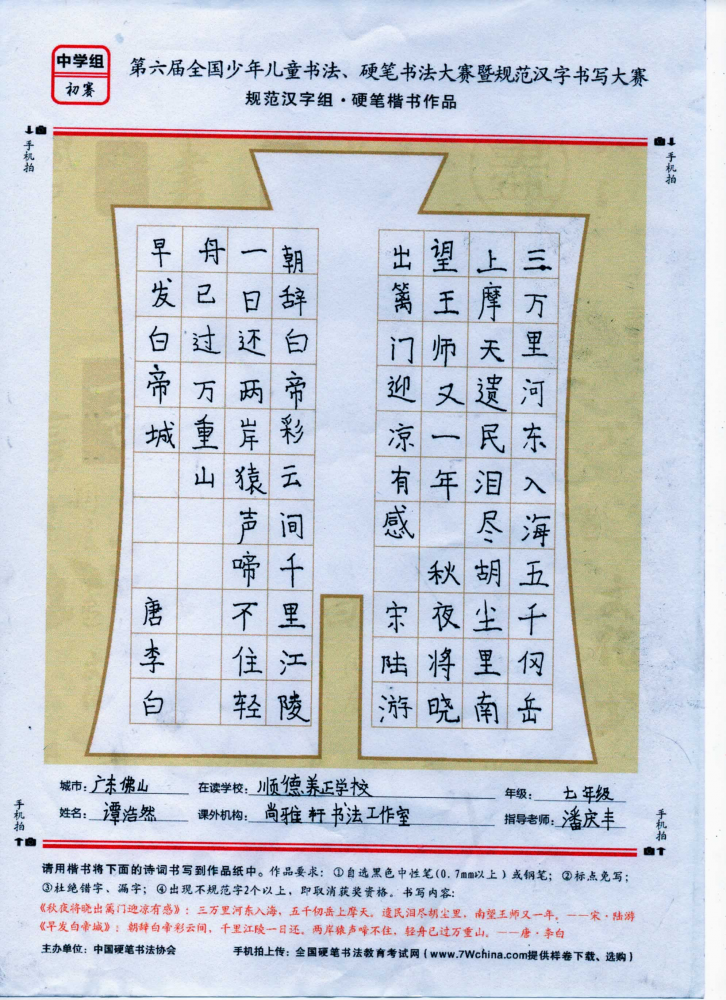 中学组
初赛
第六届全国少年儿童书法、硬笔书法大赛暨规范汉字书写大赛
规范汉字组·硬笔楷书作品
手机拍
手机拍
三万里河东入海五千仞岳
上摩天遗民泪尽胡尘里南
望王师又一年 秋夜将晓
出篱门迎凉有感 宋陆游
朝辞白帝彩云间千里江陵
一日还两岸猿声啼不住轻
舟已过万重山
早发白帝城 唐李白
城市：广东佛山 在读学校：顺德养正学校 年级：七年级
姓名：谭浩然 课外机构：尚雅轩书法工作室 指导老师：潘庆丰
手机拍
手机拍
请用楷书将下面的诗词书写到作品纸中。作品要求：①自选黑色中性笔(0.7mm以上)或钢笔；②标点免写；
③杜绝错字、漏字；④出现不规范字2个以上，即取消获奖资格。书写内容：
《秋夜将晓出篱门迎凉有感》：三万里河东入海，五千仞岳上摩天。遗民泪尽胡尘里，南望王师又一年。——宋·陆游
《早发白帝城》：朝辞白帝彩云间，千里江陵一日还。两岸猿声啼不住，轻舟已过万重山。——唐·李白
主办单位：中国硬笔书法协会 手机拍上传：全国硬笔书法教育考试网(www.7Wchina.com提供样卷下载、选购)